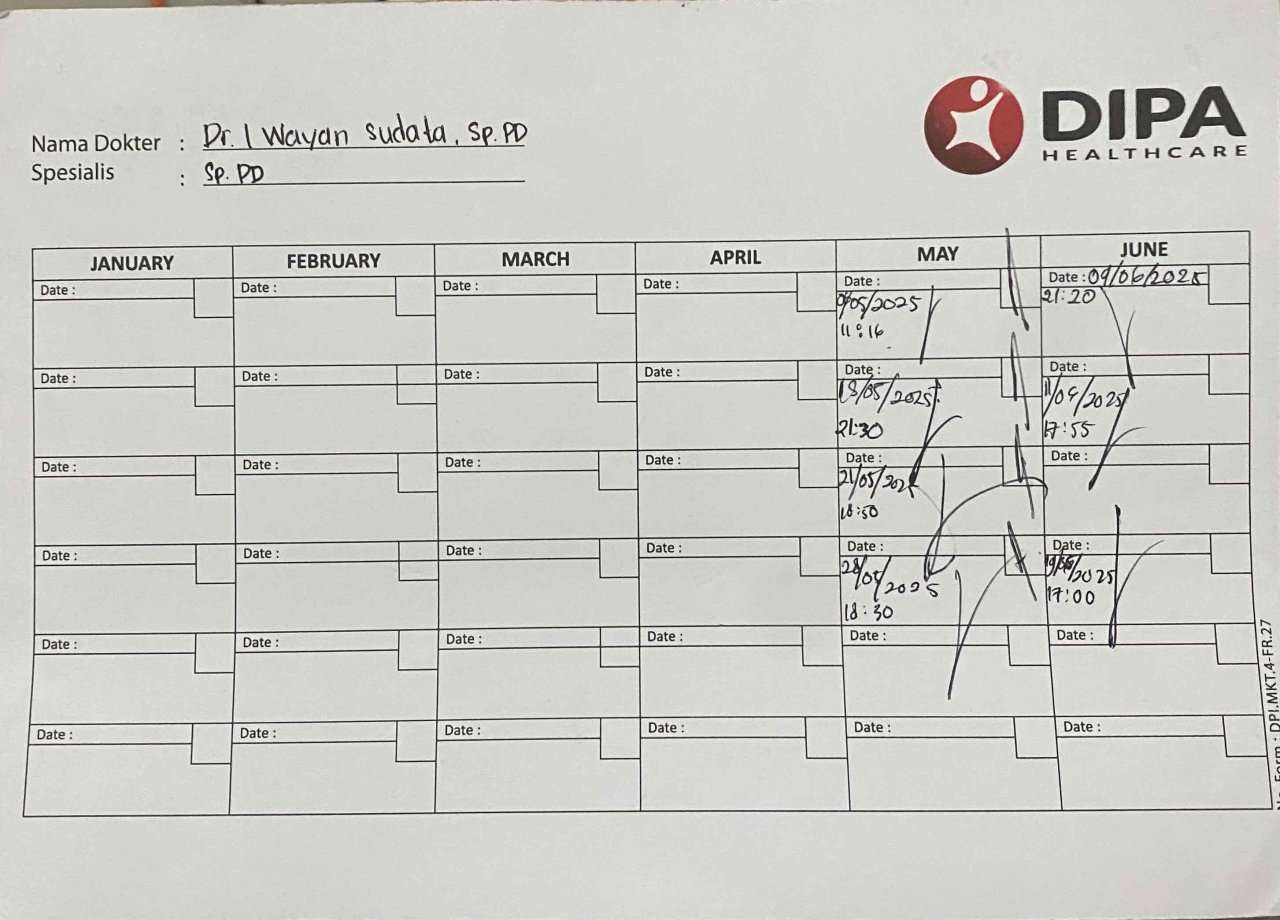 DIPA
HEALTHCARE
Nama Dokter : Dr. I Wayan Sudata, Sp.PD
Spesialis : Sp. PD
JANUARY FEBRUARY MARCH APRIL MAY JUNE
Date : Date : Date : Date : Date : Date : 09/06/2025
/05/2025 21:20
11:16
Date : Date : Date : Date : Date : Date :
/05/2025 11/06/2025
21:30 17:55
Date : Date : Date : Date : Date : Date :
21/05/2025
18:50
Date : Date : Date : Date : Date : Date :
28/05/2025 /2025
18:30 17:00
Date : Date : Date : Date : Date : Date :
Date : Date : Date : Date : Date : Date :
No. Form : DPI.MKT.4-FR.27